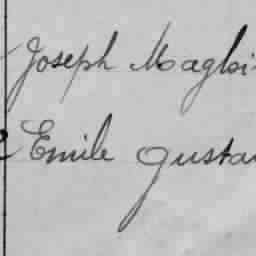 Joseph Magloi
Emile Gustav